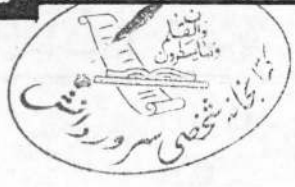 ن
والقلم
وما يسطرون
کتابخانه شخصی سرور دانش